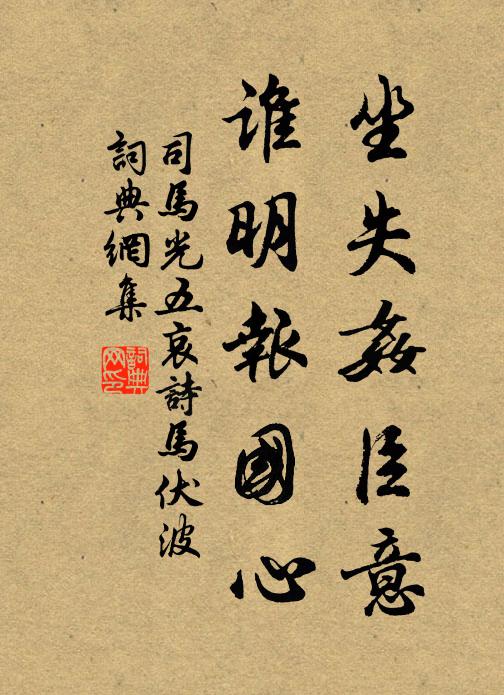 坐失姦臣意
誰明報國心
司馬光五哀詩馬伏波
詞典網集
詞典网印